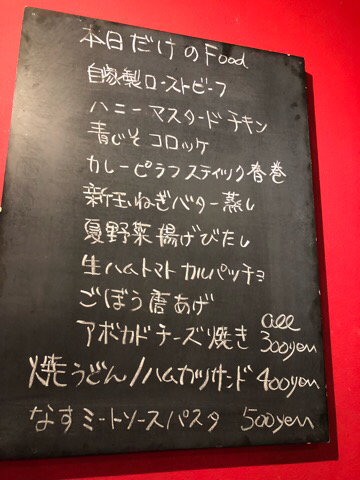 本日だけのFood
自家製ローストビーフ
ハニーマスタードチキン
青じそコロッケ
カレーピラフスティック春巻
新玉ねぎバター蒸し
夏野菜揚げびたし
生ハムトマトカルパッチョ
ごぼう唐あげ
アボカドチーズ焼き all 300yen
焼うどん/ハムカツサンド 400yen
なすミートソースパスタ 500yen